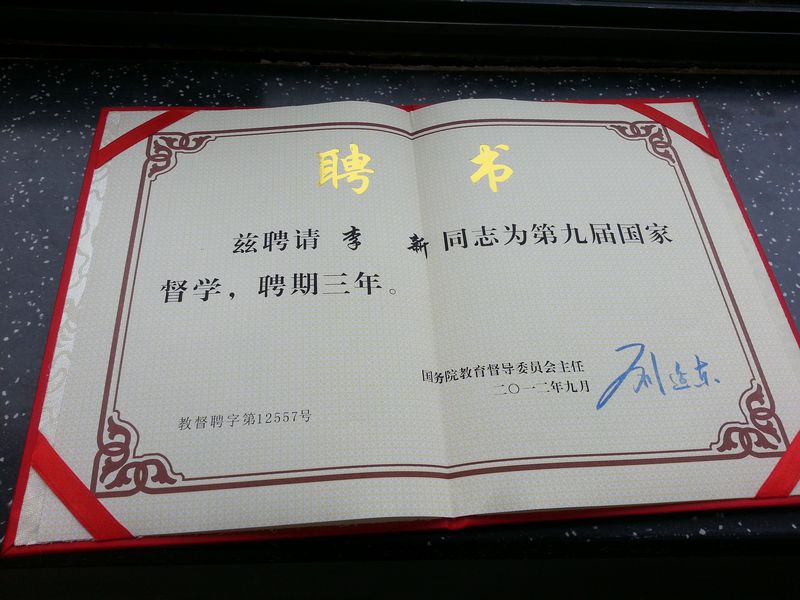 聘书
兹聘请 李 新 同志为第九届国家
督学，聘期三年。
国务院教育督导委员会主任
二〇一二年九月
刘延东
教督聘字第12557号